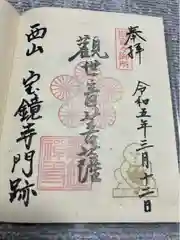 奉拝
令和五年三月十二日
觀世音菩薩
西山
宝鏡寺門跡